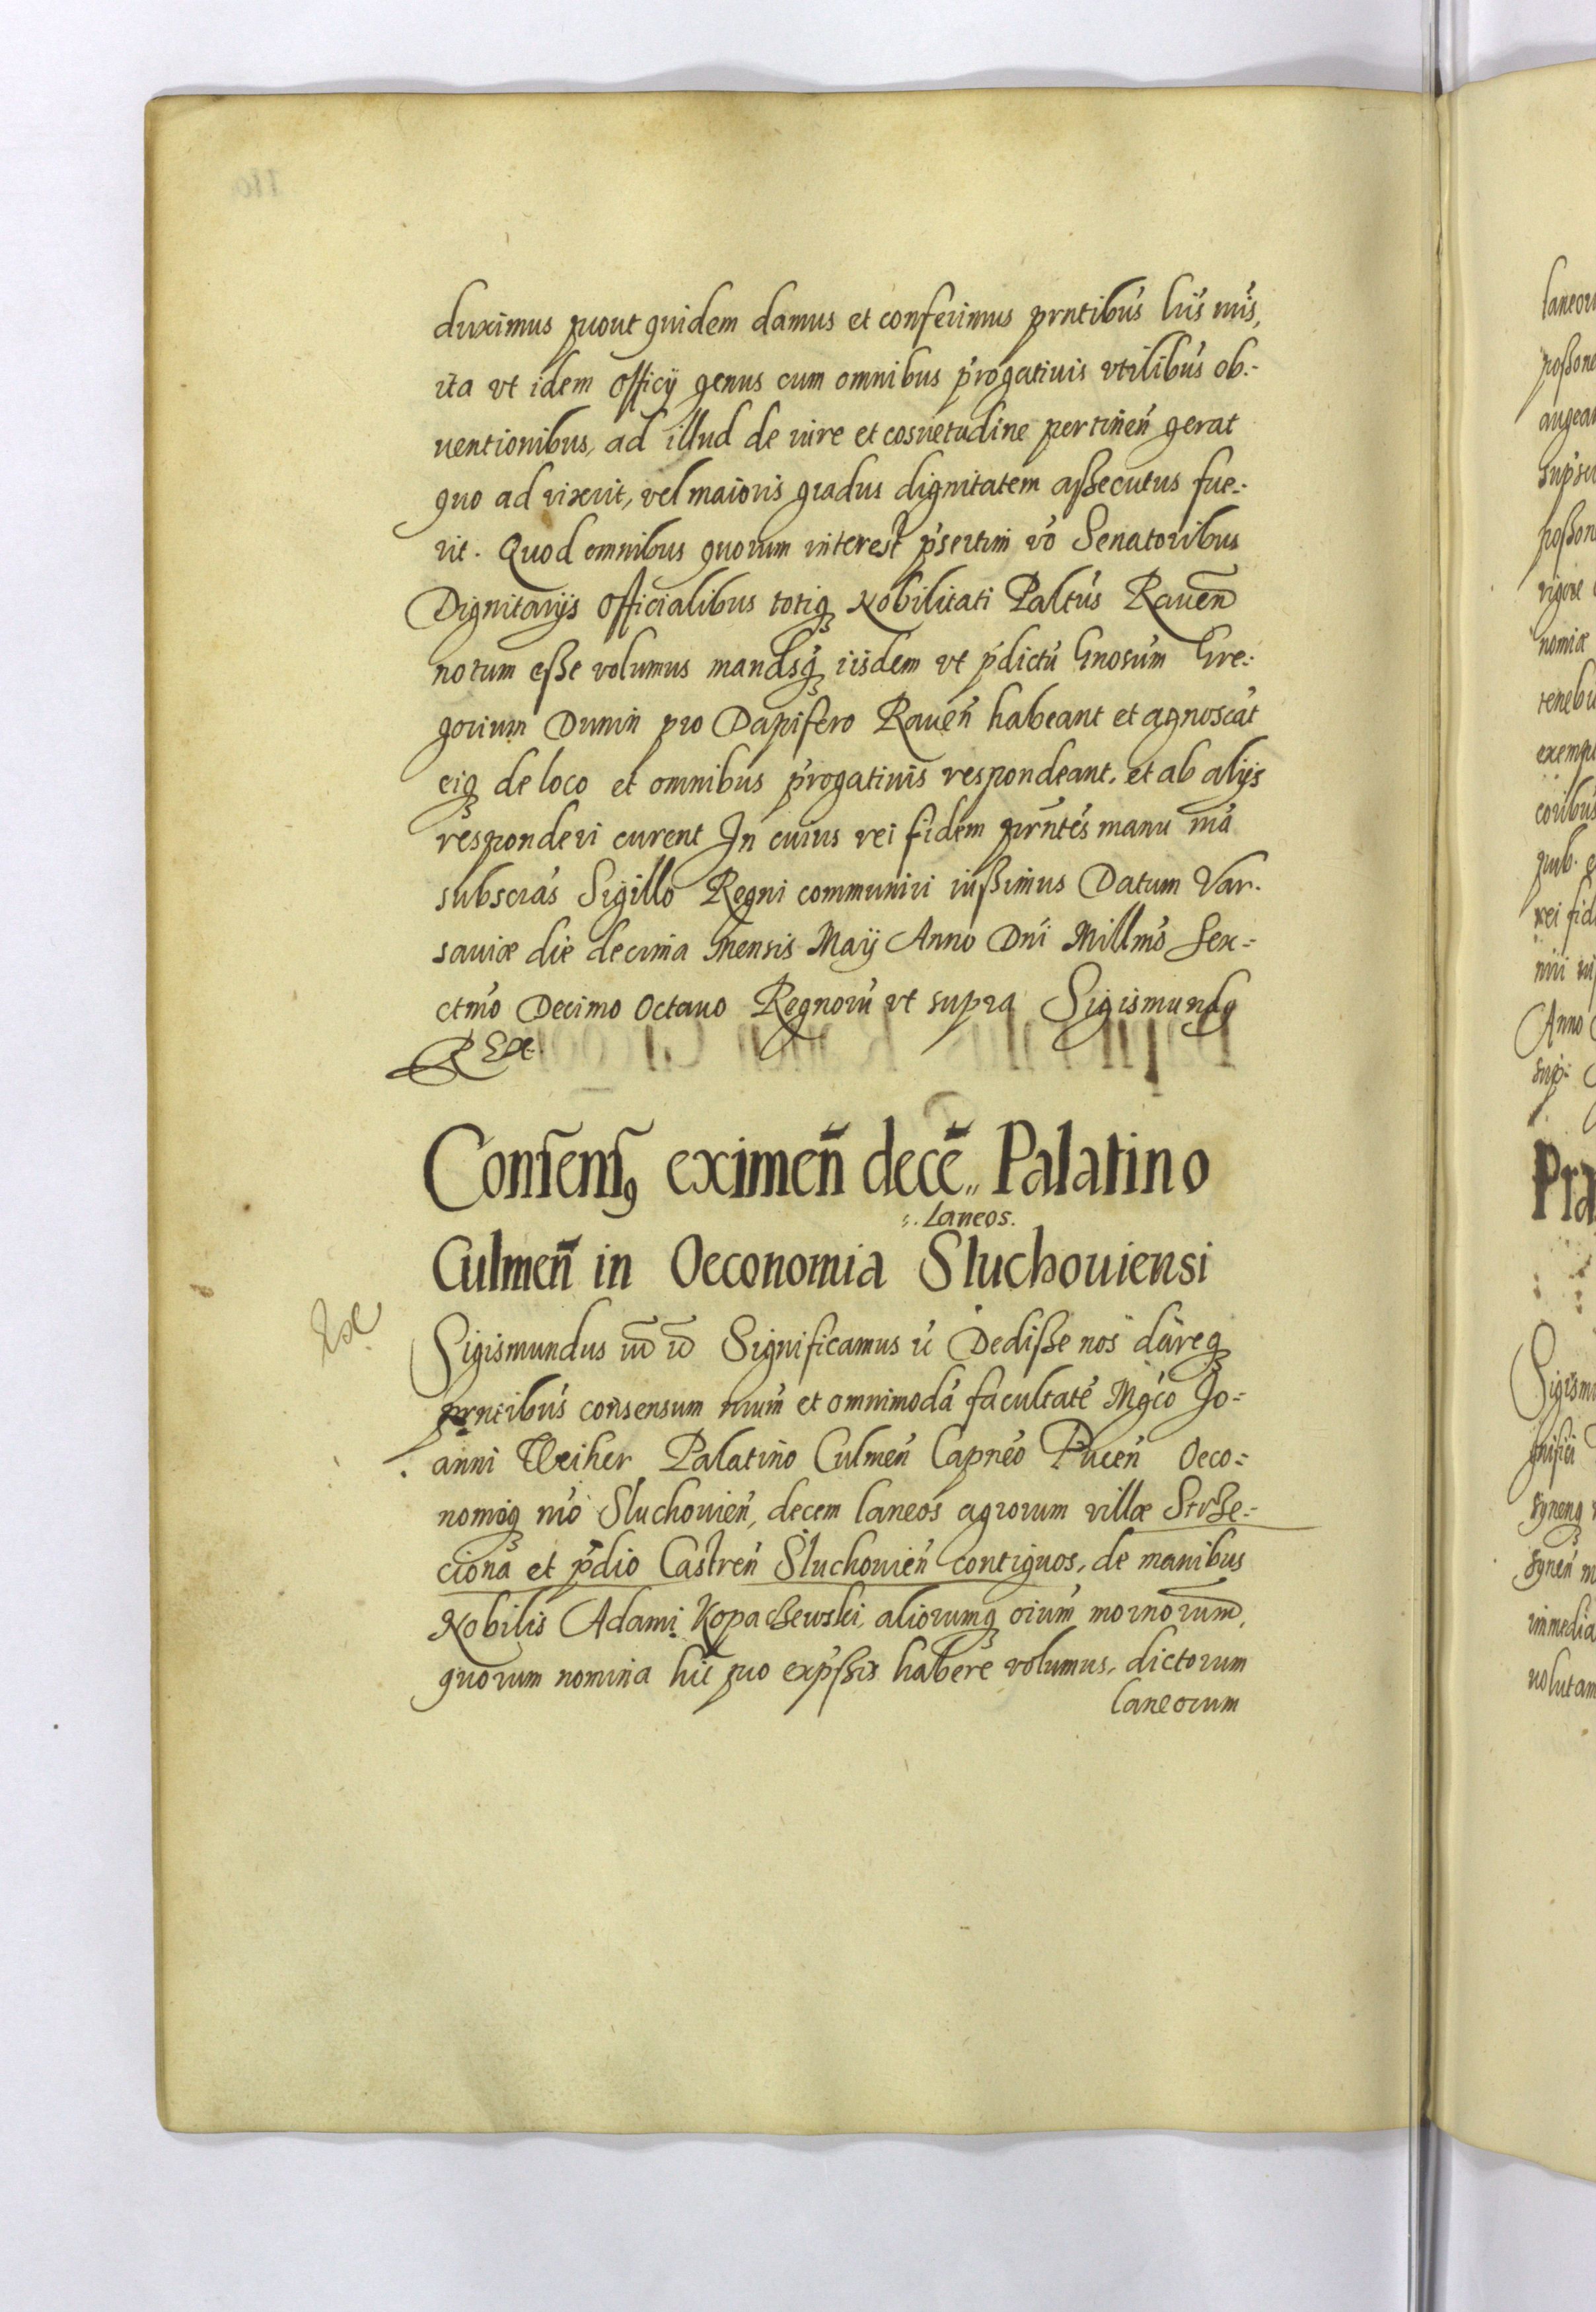 duximus prout quidem damus et conferimus prntibus lris nris,
ita vt idem officij genus cum omnibus prrogatiuis vtilibus ob-
uentionibus, ad illud de iure et cosuetudine pertinen gerat
quo ad vixerit, vel maioris gradus dignitatem assecutus fue-
rit. Quod omnibus quorum interest psertim vo Senatoribus
Dignitarijs Officialibus totiq Nobilitati Paltus Rauen
notum esse volumus mandsq iisdem vt pdictu Gnosum Gre-
gorium Dunin pro Dapifero Rauen habeant et agnoscat
eiq de loco et omnibus prrogatiuis respondeant, et ab alijs
responderi curent In cuius rei fidem prntes manu nra
subscras Sigillo Regni communiri iussimus Datum Var-
sauiæ die decima mensis Maij Anno Dni Millmo Sex-
ctmo Decimo Octauo Regnoru vt supra Sigismundq
Rex
Consensq eximen dece Palatino
Laneos.
Culmen in Oeconomia Sluchouiensi
Sigismundus Significamus Dedisse nos dareq
prntibus consensum nrum et omnimoda facultate Mgco Jo-
anni Weiher Palatino Culmen Capneo Pucen Oeco-
nomoq nro Sluchouien, decem laneos agrorum villæ Strze-
ciona et pdio Castren Sluchouien contiguos, de manibus
Nobilis Adami Kopaczewski, aliorumq oium
quorum nomina hic pro expssis habere volumus, dictorum
laneorum